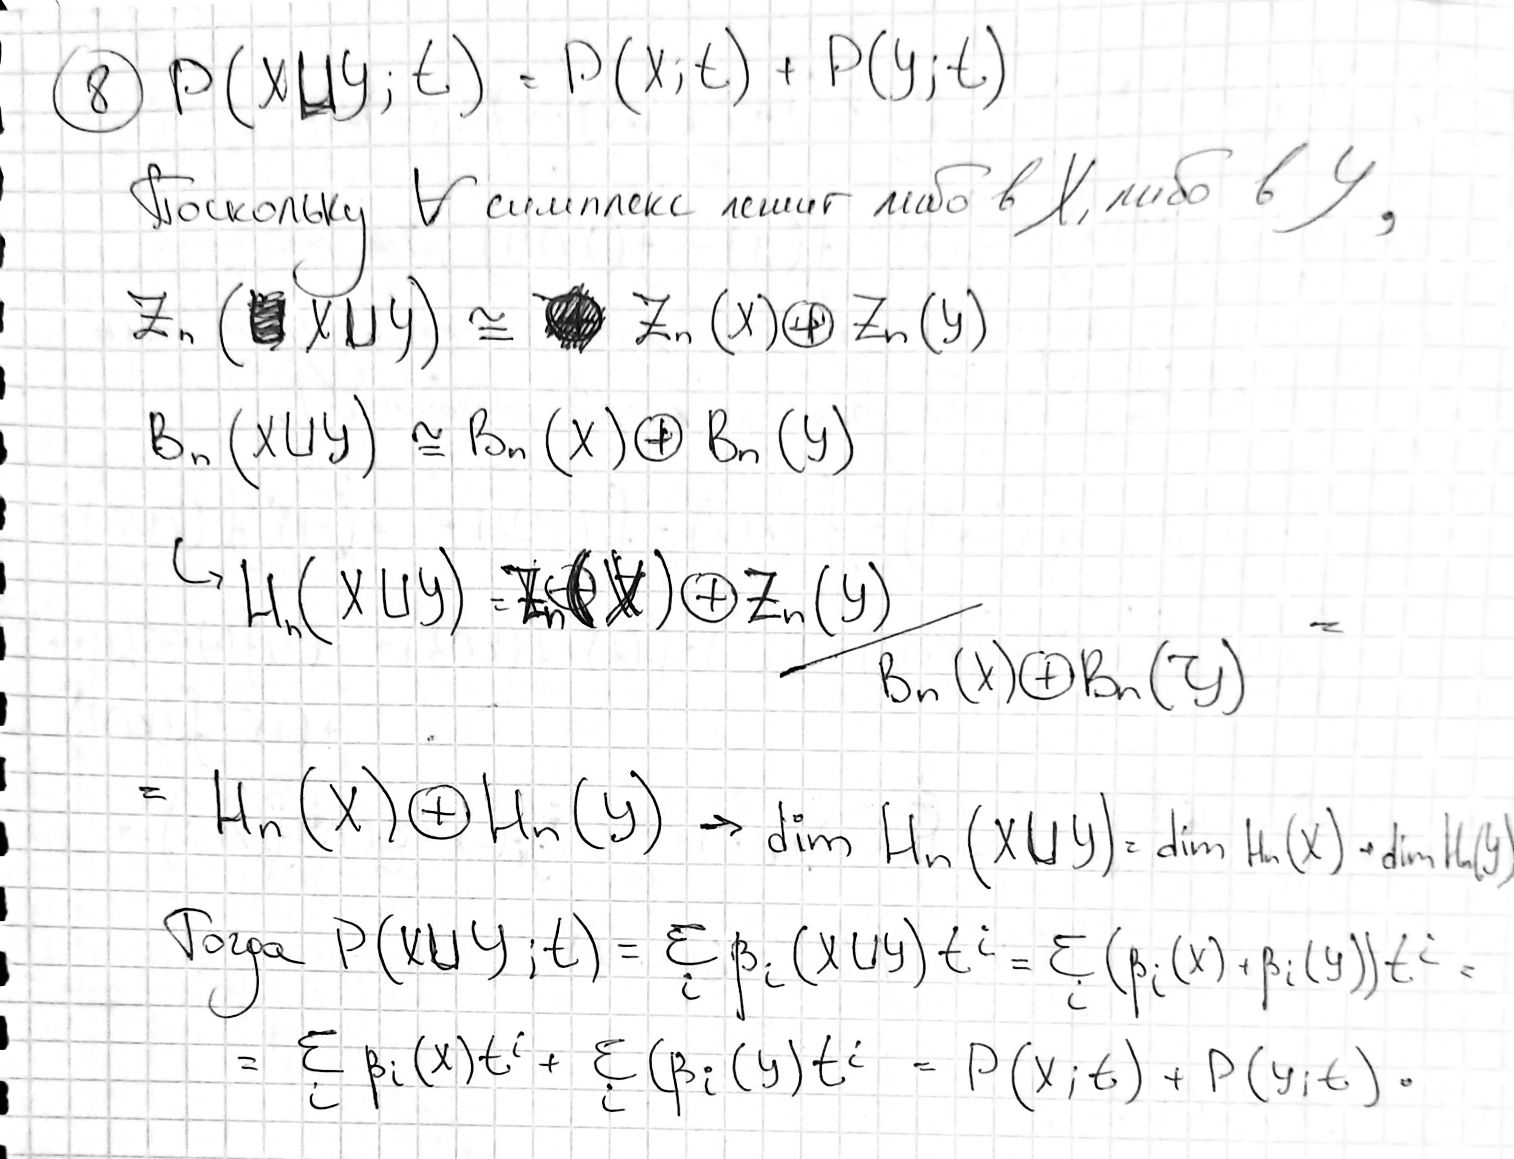 ⑧ P(X⊔Y; t) = P(X; t) + P(Y; t)
Поскольку ∀ симплекс лежит либо в X, либо в Y,
Zₙ(X⊔Y) ≅ Zₙ(X)⊕Zₙ(Y)
Bₙ(X⊔Y) ≅ Bₙ(X)⊕Bₙ(Y)
↳ Hₙ(X⊔Y) = Zₙ(X)⊕Zₙ(Y) / Bₙ(X)⊕Bₙ(Y) =
= Hₙ(X)⊕Hₙ(Y) → dim Hₙ(X⊔Y) = dim Hₙ(X) + dim Hₙ(Y)
Тогда P(X⊔Y; t) = Σᵢ βᵢ(X⊔Y)tⁱ = Σᵢ (βᵢ(X) + βᵢ(Y))tⁱ =
= Σᵢ βᵢ(X)tⁱ + Σᵢ (βᵢ(Y)tⁱ = P(X; t) + P(Y; t).